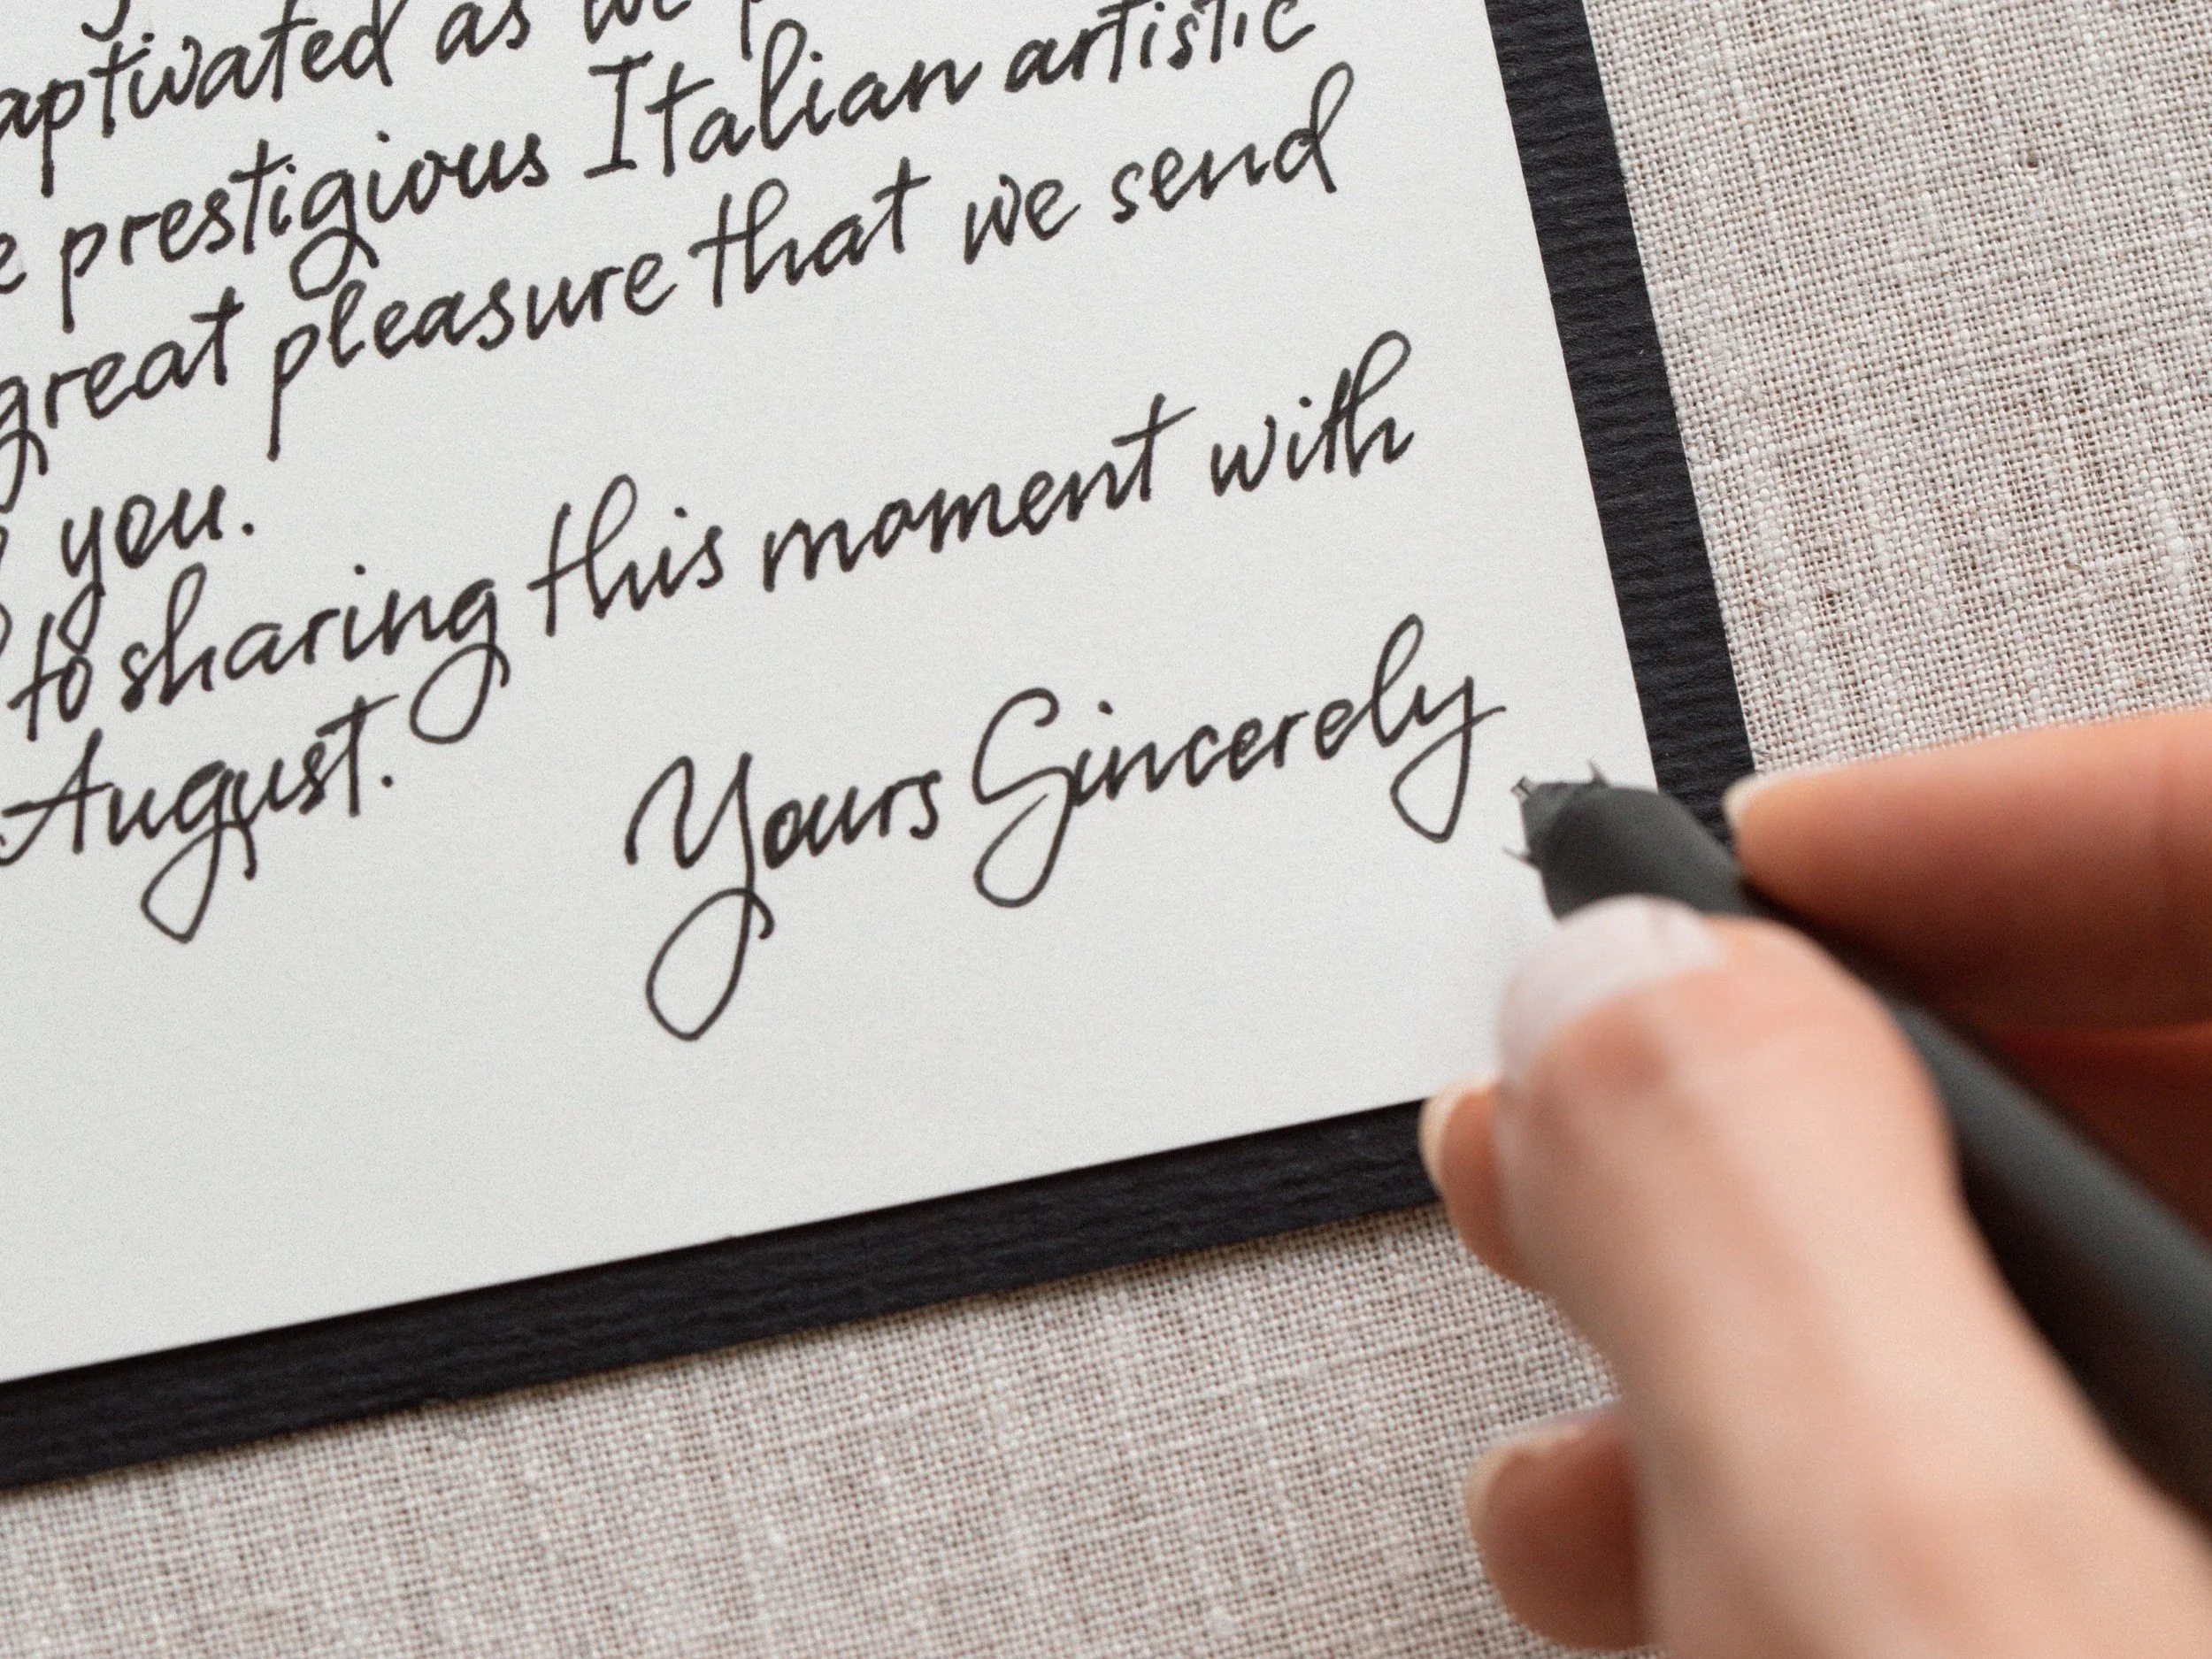 aptivated as we
prestigious Italian artistic
great pleasure that we send
you.
to sharing this moment with
August.
Yours Sincerely